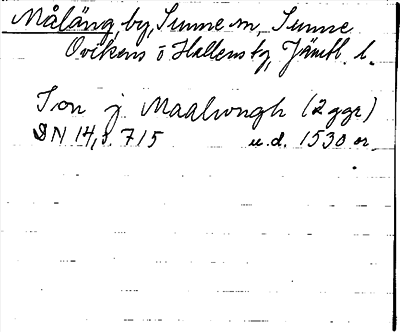 Måläng, by, Sunne sn, Sunne
Ovikens o Hallens tg, Jämtl. l.
Ion j Maalwongh (2 ggr)
DN 14, s. 715 u.d. 1530 or.